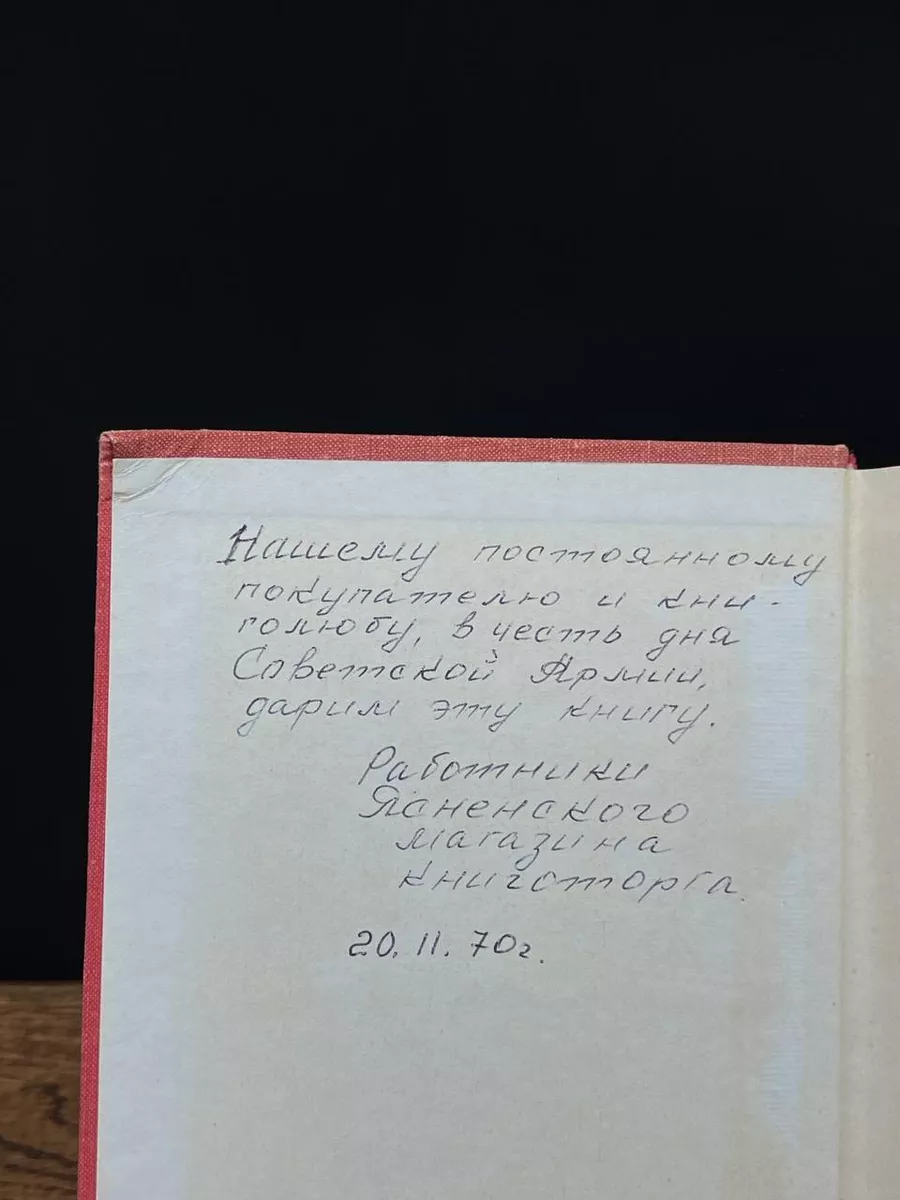 Нашему постоянному
покупателю и кни-
голюбу, в честь дня
Советской Армии,
дарим эту книгу.
Работники
Ясненского
магазина
книготорга.
20. II. 70г.